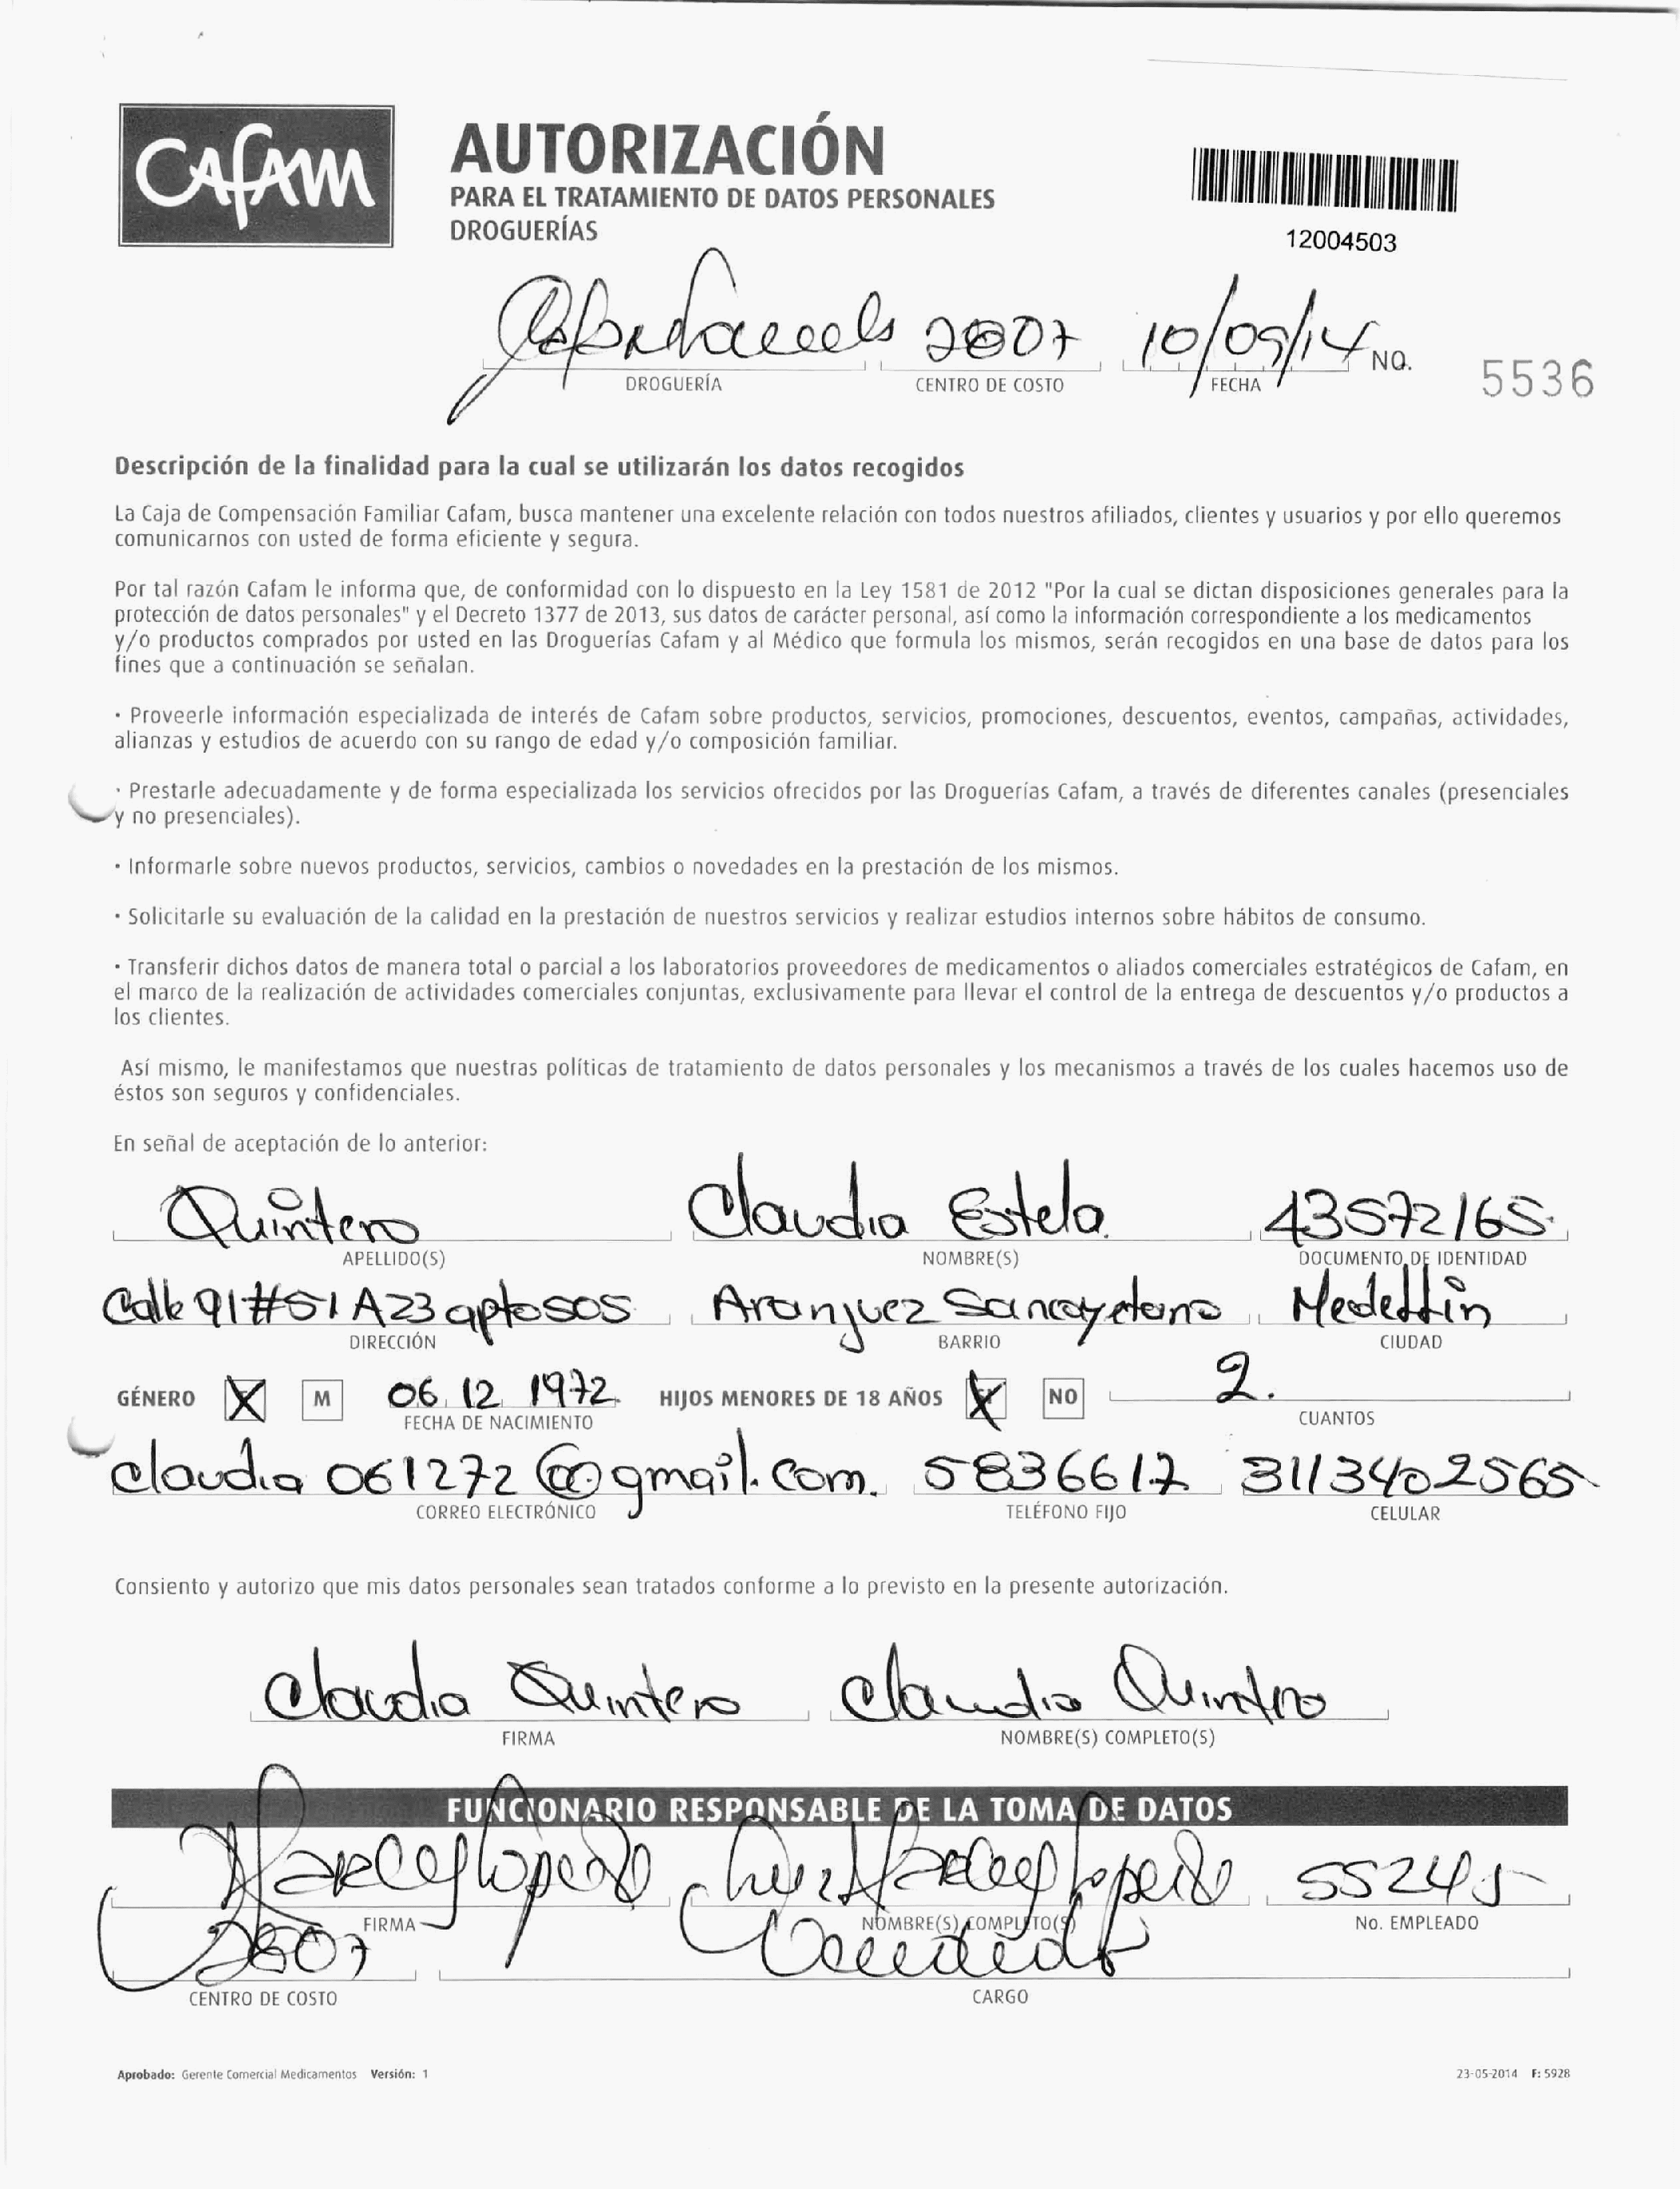 CAFAM
AUTORIZACIÓN
PARA EL TRATAMIENTO DE DATOS PERSONALES
DROGUERÍAS
12004503
10/09/14 NO. 5536
DROGUERÍA CENTRO DE COSTO FECHA
Descripción de la finalidad para la cual se utilizarán los datos recogidos
La Caja de Compensación Familiar Cafam, busca mantener una excelente relación con todos nuestros afiliados, clientes y usuarios y por ello queremos
comunicarnos con usted de forma eficiente y segura.
Por tal razón Cafam le informa que, de conformidad con lo dispuesto en la Ley 1581 de 2012 "Por la cual se dictan disposiciones generales para la
protección de datos personales" y el Decreto 1377 de 2013, sus datos de carácter personal, así como la información correspondiente a los medicamentos
y/o productos comprados por usted en las Droguerías Cafam y al Médico que formula los mismos, serán recogidos en una base de datos para los
fines que a continuación se señalan.
· Proveerle información especializada de interés de Cafam sobre productos, servicios, promociones, descuentos, eventos, campañas, actividades,
alianzas y estudios de acuerdo con su rango de edad y/o composición familiar.
· Prestarle adecuadamente y de forma especializada los servicios ofrecidos por las Droguerías Cafam, a través de diferentes canales (presenciales
y no presenciales).
· Informarle sobre nuevos productos, servicios, cambios o novedades en la prestación de los mismos.
· Solicitarle su evaluación de la calidad en la prestación de nuestros servicios y realizar estudios internos sobre hábitos de consumo.
· Transferir dichos datos de manera total o parcial a los laboratorios proveedores de medicamentos o aliados comerciales estratégicos de Cafam, en
el marco de la realización de actividades comerciales conjuntas, exclusivamente para llevar el control de la entrega de descuentos y/o productos a
los clientes.
Así mismo, le manifestamos que nuestras políticas de tratamiento de datos personales y los mecanismos a través de los cuales hacemos uso de
éstos son seguros y confidenciales.
En señal de aceptación de lo anterior:
Quintero Claudia Estela 43572165
APELLIDO(S) NOMBRE(S) DOCUMENTO DE IDENTIDAD
Calle 91 #51 A23 apto 505 Aranjuez Sancayetano Medellin
DIRECCIÓN BARRIO CIUDAD
GÉNERO X M 06 12 1972 HIJOS MENORES DE 18 AÑOS X NO 2.
FECHA DE NACIMIENTO CUANTOS
claudia061272@gmail.com. 5836617 3113402565
CORREO ELECTRÓNICO TELÉFONO FIJO CELULAR
Consiento y autorizo que mis datos personales sean tratados conforme a lo previsto en la presente autorización.
Claudia Quintero Claudia Quintero
FIRMA NOMBRE(S) COMPLETO(S)
FUNCIONARIO RESPONSABLE DE LA TOMA DE DATOS
55245
FIRMA NOMBRE(S) COMPLETO(S) No. EMPLEADO
CENTRO DE COSTO CARGO
Aprobado: Gerente Comercial Medicamentos Versión: 1 23-05-2014 F: 5928